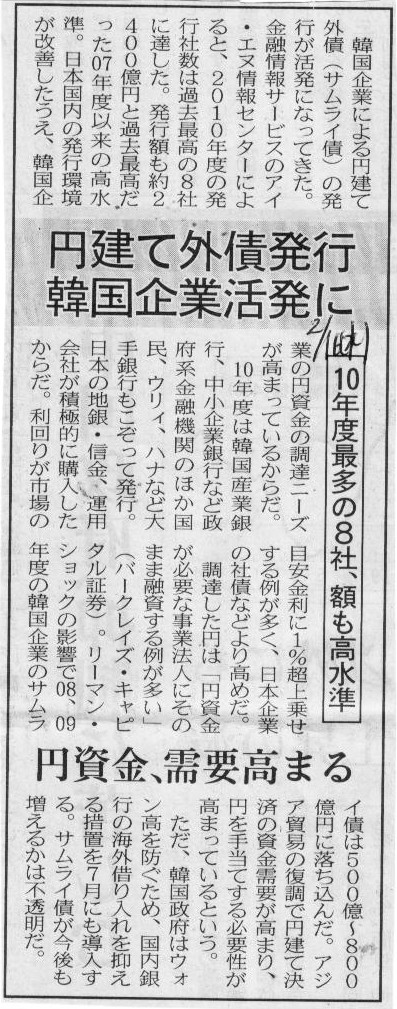 円建て外債発行
韓国企業活発に
10年度最多の8社、額も高水準
韓国企業による円建て
外債（サムライ債）の発
行が活発になってきた。
金融情報サービスのアイ
・エヌ情報センターによ
ると、2010年度の発
行社数は過去最高の8社
に達した。発行額も約2
400億円と過去最高だ
った07年度以来の高水
準。日本国内の発行環境
が改善したうえ、韓国企
業の円資金の調達ニーズ
が高まっているからだ。
10年度は韓国産業銀
行、中小企業銀行など政
府系金融機関のほか国
民、ウリィ、ハナなど大
手銀行もこぞって発行。
日本の地銀・信金、運用
会社が積極的に購入した
からだ。利回りが市場の
目安金利に1%超上乗せ
する例が多く、日本企業
の社債などより高めだ。
調達した円は「円資金
が必要な事業法人にその
まま融資する例が多い」
（バークレイズ・キャピ
タル証券）。リーマン・
ショックの影響で08、09
年度の韓国企業のサムラ
円資金、需要高まる
イ債は500億〜800
億円に落ち込んだ。アジ
ア貿易の復調で円建て決
済の資金需要が高まり、
円を手当てする必要性が
高まっているという。
ただ、韓国政府はウォ
ン高を防ぐため、国内銀
行の海外借り入れを抑え
る措置を7月にも導入す
る。サムライ債が今後も
増えるかは不透明だ。